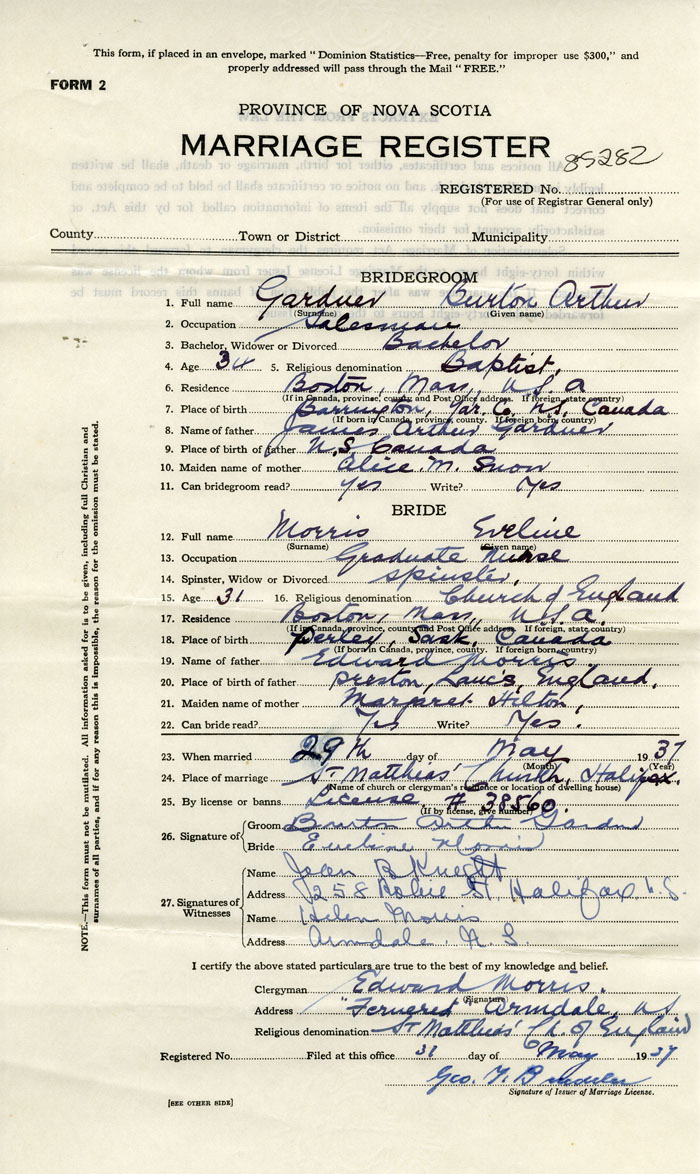 This form, if placed in an envelope, marked "Dominion Statistics—Free, penalty for improper use $300," and
properly addressed will pass through the Mail "FREE."
FORM 2
PROVINCE OF NOVA SCOTIA
MARRIAGE REGISTER
85282
REGISTERED No.
(For use of Registrar General only)
County Town or District Municipality
BRIDEGROOM
1. Full name Gardner Burton Arthur
(Surname) (Given name)
2. Occupation Salesman
3. Bachelor, Widower or Divorced Bachelor
4. Age 34 5. Religious denomination Baptist,
6. Residence Boston, Mass, U.S.A
(If in Canada, province, county and Post Office address. If foreign, state country)
7. Place of birth Barrington, Yar. Co, N.S, Canada
(If born in Canada, province, county. If foreign born, country)
8. Name of father James Arthur Gardner
9. Place of birth of father N.S. Canada
10. Maiden name of mother Alice. M. Snow
11. Can bridegroom read? Yes Write? Yes
BRIDE
12. Full name Morris Eveline
(Surname) (Given name)
13. Occupation Graduate Nurse
14. Spinster, Widow or Divorced Spinster,
15. Age 31 16. Religious denomination Church of England
17. Residence Boston, Mass, U.S.A.
(If in Canada, province, county and Post Office address. If foreign, state country)
18. Place of birth Sask, Canada
(If born in Canada, province, county. If foreign born, country)
19. Name of father Edward Morris.
20. Place of birth of father Preston, Lancs, England,
21. Maiden name of mother Margaret Hilton,
22. Can bride read? Yes Write? Yes.
23. When married 29th day of May 1937
(Month) (Year)
24. Place of marriage St Matthias' Church, Halifax.
(Name of church or clergyman's residence or location of dwelling house)
25. By license or banns License, # 38560.
(If by license, give number)
26. Signature of Groom Burton Arthur Gardner
Bride Eveline Morris
27. Signatures of Witnesses
Name Jean B Knight
Address 258 Robie St Halifax N.S.
Name Helen Morris
Address Armdale. N.S.
I certify the above stated particulars are true to the best of my knowledge and belief.
Clergyman Edward Morris.
(Signature)
Address "Fernered" Armdale, N.S
Religious denomination St Matthias' Ch. of England
Registered No. Filed at this office 31 day of May 1937
Geo. F.
Signature of Issuer of Marriage License.
[SEE OTHER SIDE]
NOTE.—This form must not be mutilated. All information asked for is to be given, including full Christian and
surnames of all parties, and if for any reason this is impossible, the reason for the omission must be stated.